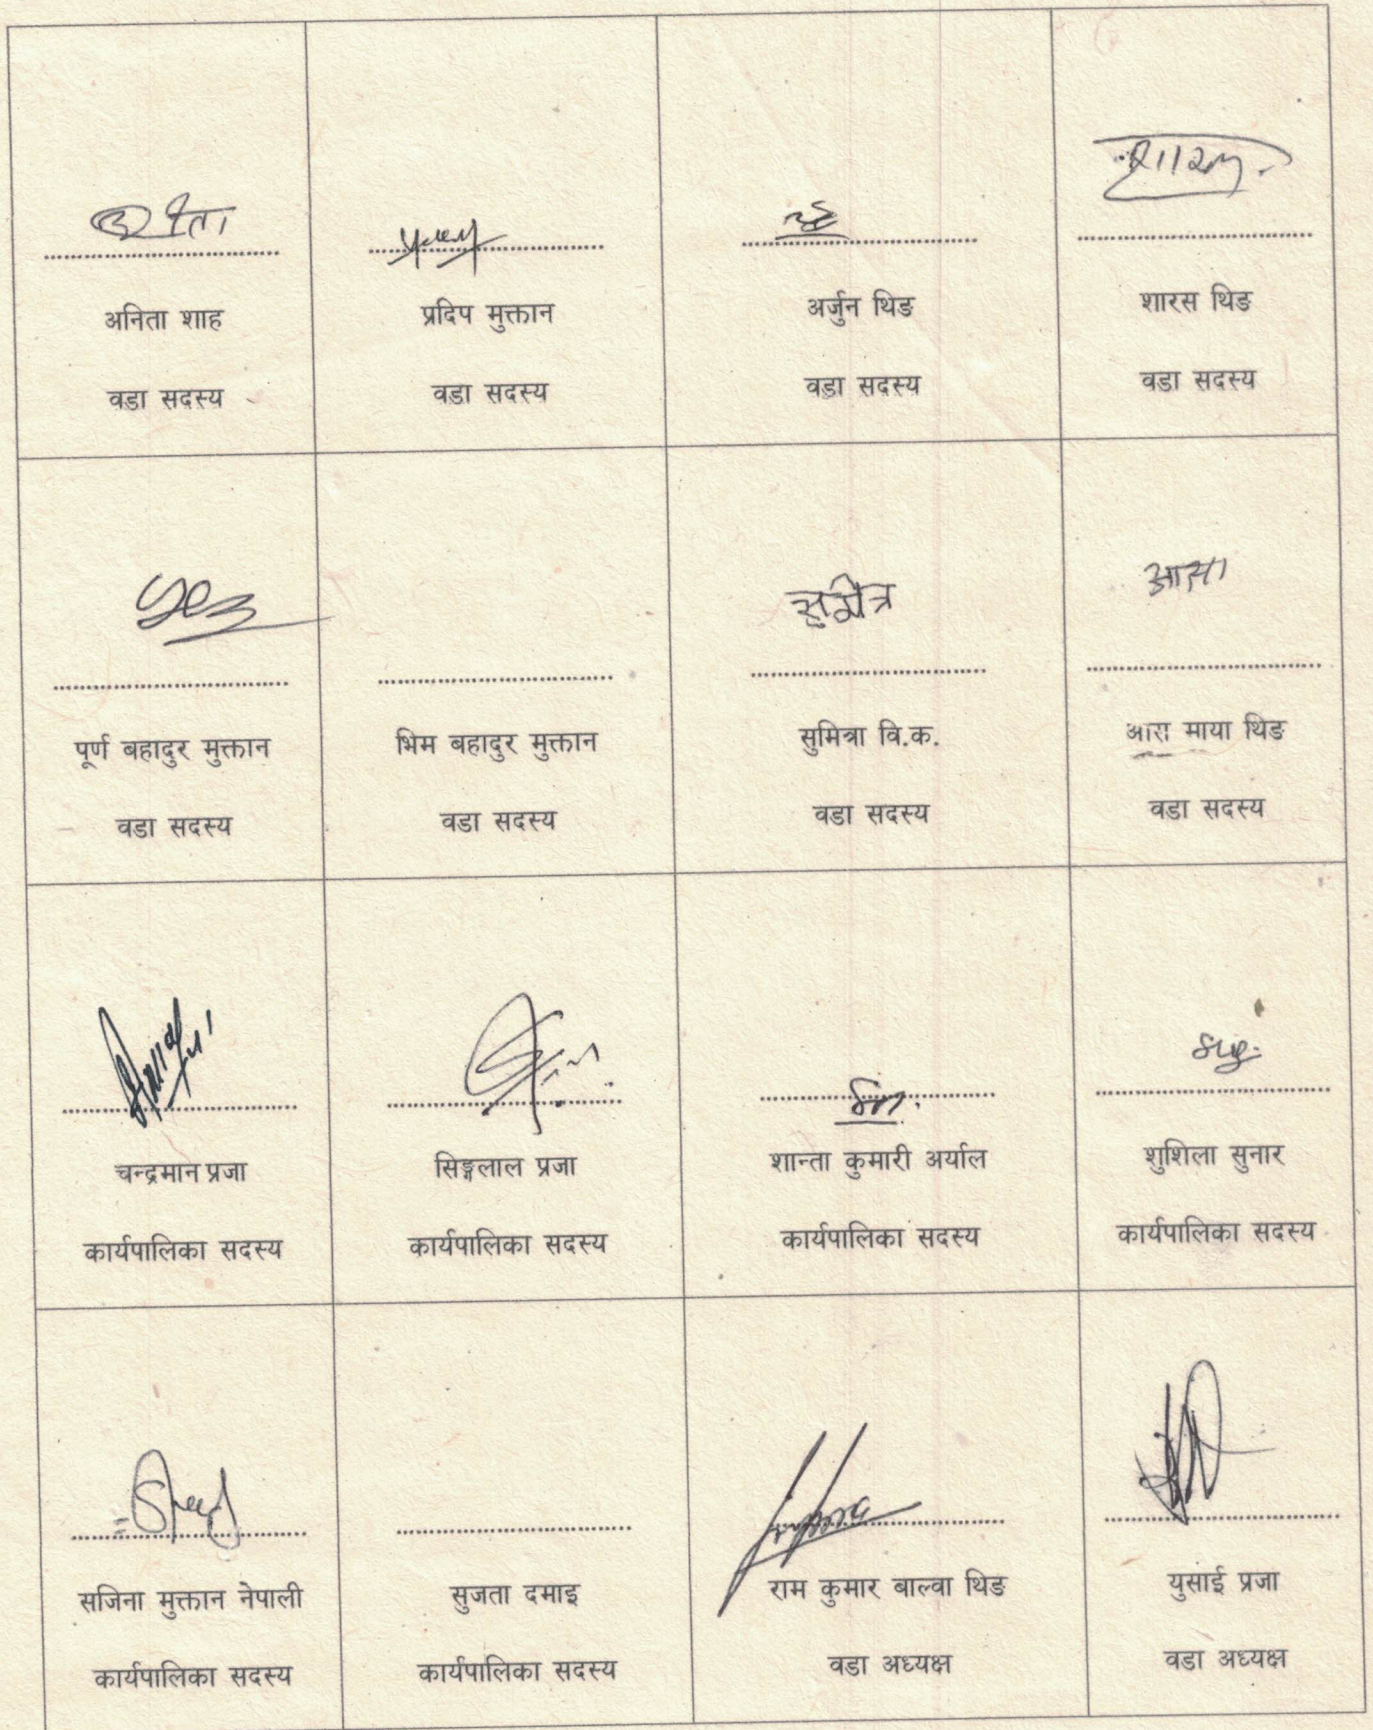 अनिता शाह
वडा सदस्य
प्रदिप मुक्तान
वडा सदस्य
अर्जुन थिङ
वडा सदस्य
शारस थिङ
वडा सदस्य
पूर्ण बहादुर मुक्तान
वडा सदस्य
भिम बहादुर मुक्तान
वडा सदस्य
सुमित्रा वि.क.
वडा सदस्य
माया थिङ
वडा सदस्य
चन्द्रमान प्रजा
कार्यपालिका सदस्य
सिङ्गलाल प्रजा
कार्यपालिका सदस्य
शान्ता कुमारी अर्याल
कार्यपालिका सदस्य
शुशिला सुनार
कार्यपालिका सदस्य
सजिना मुक्तान नेपाली
कार्यपालिका सदस्य
सुजता दमाइ
कार्यपालिका सदस्य
राम कुमार बाल्वा थिङ
वडा अध्यक्ष
युसाई प्रजा
वडा अध्यक्ष